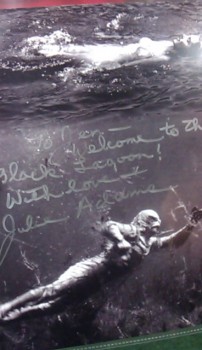 To Ken —
Welcome to the
Black Lagoon!
With love
Julie Adams